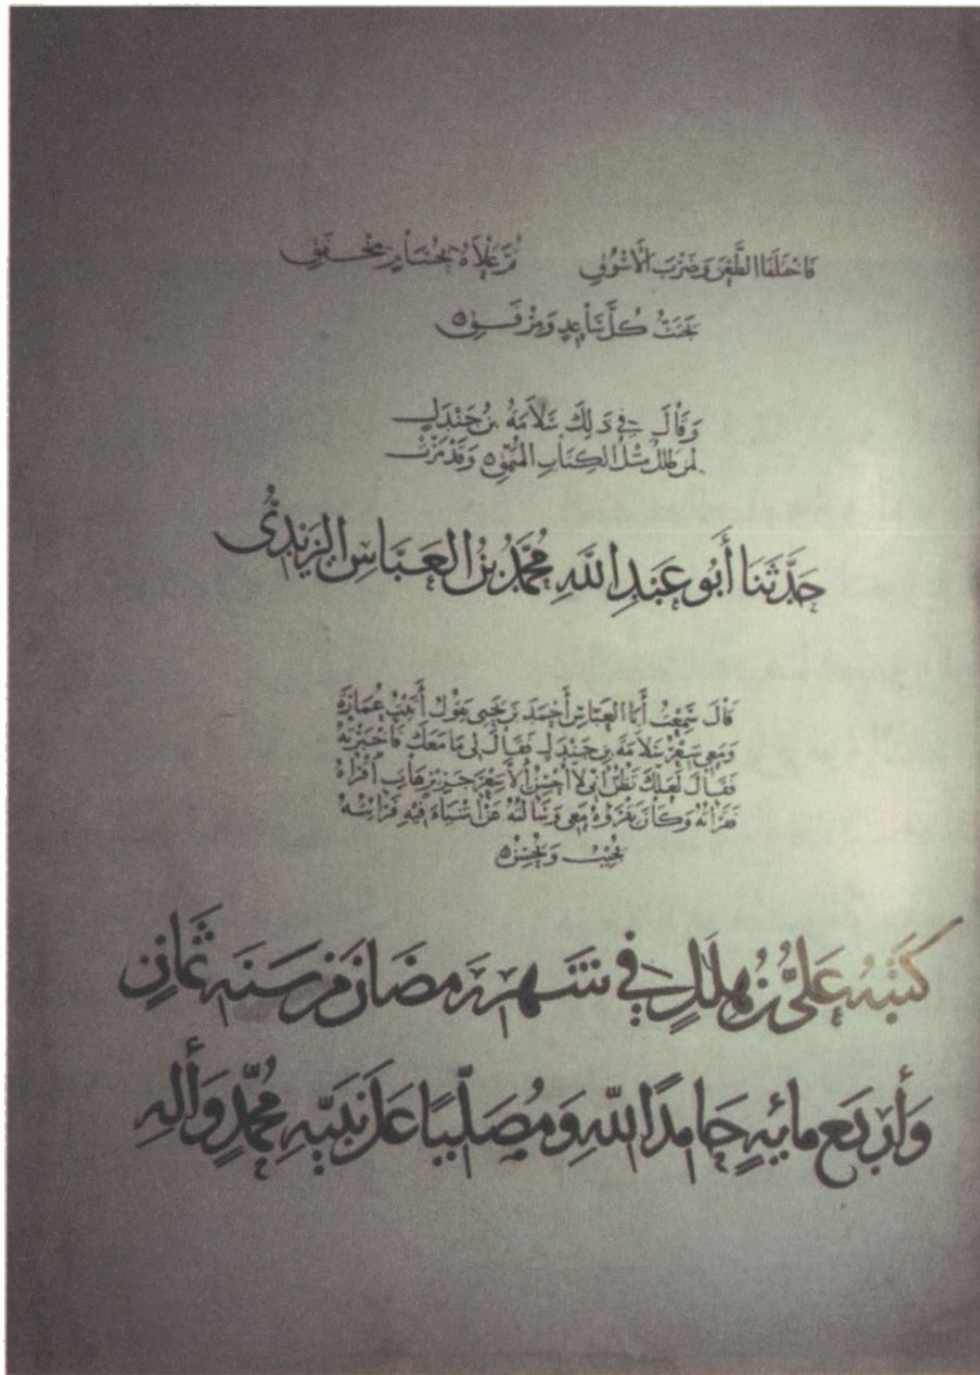 فَاخْتَلَفَا الطَّعْنَ وَضَرْبَ الْأَسْوُقِ ثُمَّ عَلَاهُ بِحُسَامٍ مِخْفَقِ
كُلَّ سَاعِدٍ وَمِرْفَقِ ه
وَقَالَ فِي ذَلِكَ سَلَامَةُ بْنُ جَنْدَلٍ
لِمَنْ طَلَلٌ مِثْلُ الكِتَابِ المُنَمَّقِ ه وَقَدْ مَرَّتْ
حَدَّثَنَا أَبُو عَبْدِ اللهِ مُحَمَّدُ بْنُ العَبَّاسِ اليَزِيدِيُّ
قَالَ سَمِعْتُ أَبَا العَبَّاسِ أَحْمَدَ بْنَ يَحْيَى يَقُولُ أَتَيْتُ عُمَارَةَ
وَمَعِي شِعْرُ سَلَامَةَ بْنِ جَنْدَلٍ فَقَالَ لِي مَا مَعَكَ فَأَخْبَرْتُهُ
فَقَالَ لَعَلَّكَ تَظُنُّ أَنِّي لَا أُحْسِنُ إِلَّا شِعْرَ جَرِيرٍ هَاتِ أَقْرَأهُ
فَقَرَأْتُهُ وَكَانَ يَقْرَؤُهُ مَعِي وَسَأَلْتُهُ عَنْ أَشْيَاءَ فِيهِ فَرَأَيْتُهُ
يُجِيبُ وَيُحْسِنُ ه
كَتَبَهُ عَلِيُّ بْنُ هِلَالٍ فِي شَهْرِ رَمَضَانَ مِنْ سَنَةِ ثَمَانٍ
وَأَرْبَعِ مِائَةٍ حَامِدًا لِلّهِ وَمُصَلِّيًا عَلَى نَبِيِّهِ مُحَمَّدٍ وَآلِهِ